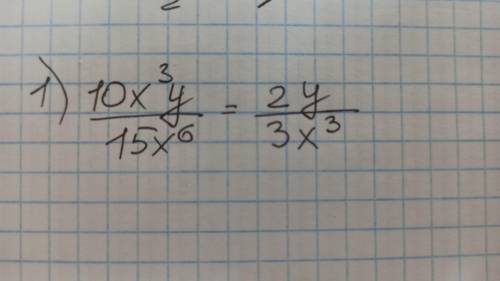 1) 10x³y / 15x⁶ = 2y / 3x³